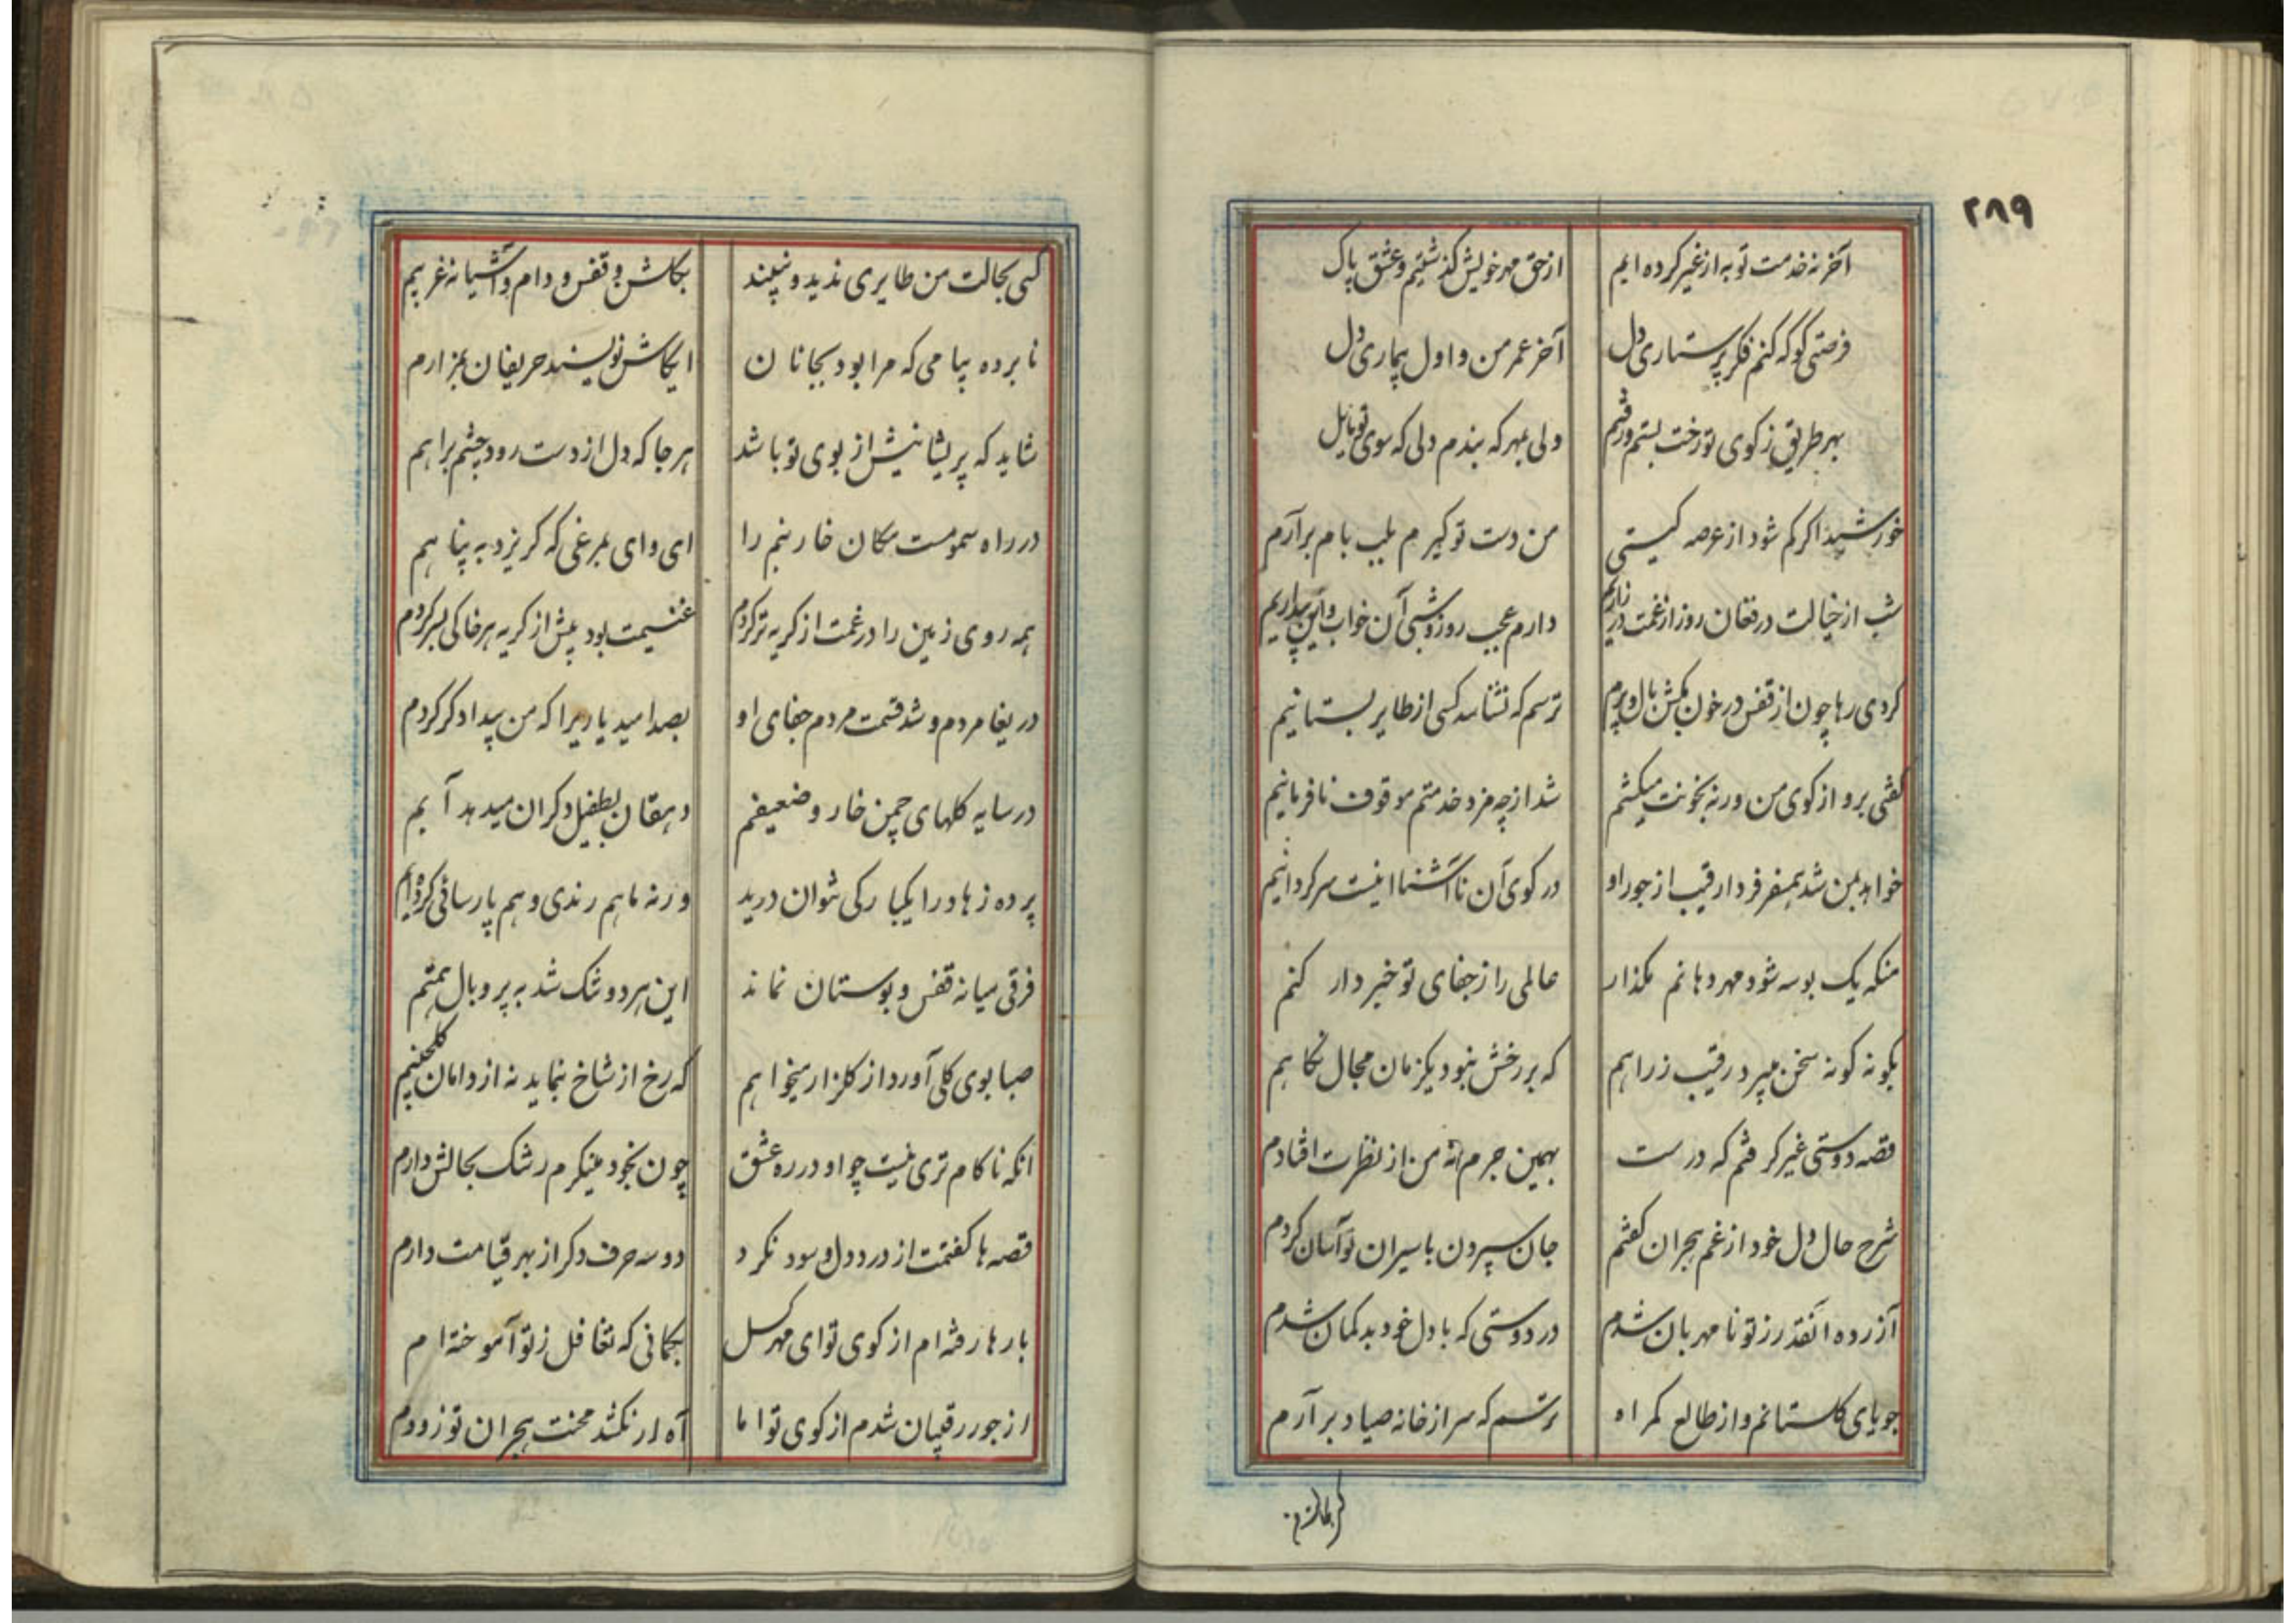 ٢٨٩
آخر نه خدمت تو به از غیر کرده ایم از حق مهر خویش گذشتیم و عشق پاک
فرصتی کو که کنم فکر پرستاری دل آخر عمر من و اول بیماری دل
بهر طریق ز کوی تو رخت بستم و رفتم ولی بهر که بندم دلی که سوی تو مایل
خورشید اکر کم شود از عرصه کیتی من دست تو کیرم بلب بام برآرم
شب از خیالت در فغان روز از غمت در زاریم دارم عجب روز و شبی آن خواب و این بیداریم
کردی رها چون از قفس در خون بکش بال و پرم ترسم که نشناسد کسی از طایر بستانیم
کفتی برو از کوی من ورنه بخونت میکشم شد از چه مزد خدمتم موقوف نافرمانیم
خواهد بمن شد همسفر فردا رقیب از جور او در کوی آن ناآشنا اینست سرکردانیم
منکه یک بوسه شود مهر دهانم مکذار عالمی را ز جفای تو خبر دار کنم
بکونه کونه سخن میبرد رقیب ز راهم که بر رخش نبود یکزمان مجال نکاهم
قصه دوستی غیر کرفتم که درست بهمین جرم نه من از نظرت افتادم
شرح حال دل خود از غم هجران کفتم جان سپردن باسیران تو آسان کردم
آزرده آنقدر ز تو نامهربان شدم در دوستی که با دل خود بدکمان شدم
جویای کلستانم و از طالع کمراه ترسم که سر از خانه صیاد برآرم
کسی بحالت من طایری ندید و نبیند بکاش و قفس و دام و آشیانه غریبم
نابرده پیامی که مرا بود بجانان ایکاش نویسند حریفان بمزارم
شاید که پریشانیش از بوی تو باشد هر جا که دل از دست رود چشم براهم
در راه سمومست مکان خار بنم را ای وای بمرغی که کریزد به پناهم
همه روی زمین را در غمت از کریه تر کردم غنیمت بود پیش از کریه هر خاکی بسر کردم
دریغا مردم و شد قسمت مردم جفای او بصد امید یاریرا که من بیدادکر کردم
در سایه کلهای چمن خار و ضعیفم دهقان بطفیل دکران میدهد آبم
پرده زهاد را یکبارکی نتوان درید ورنه ما هم رندی و هم پارسائی کرده‌ایم
فرقی میانه قفس و بوستان نماند این هر دو تنک شد به پر و بال همتم
صبا بوی کلی آورد از کلزار میخواهم که رخ از شاخ بنماید نه از دامان کلچینم
آنکه ناکام تری نیست چو او در ره عشق چون بخود مینکرم رشک بحالش دارم
قصه ها کفتمت از درد دل و سود نکرد دو سه حرف دکر از بهر قیامت دارم
بارها رفته ام از کوی تو ای مهرکسل بکمانی که تغافل ز تو آموخته ام
از جور رقیبان شدم از کوی تو اما آه ار نکشد محنت هجران تو زودم